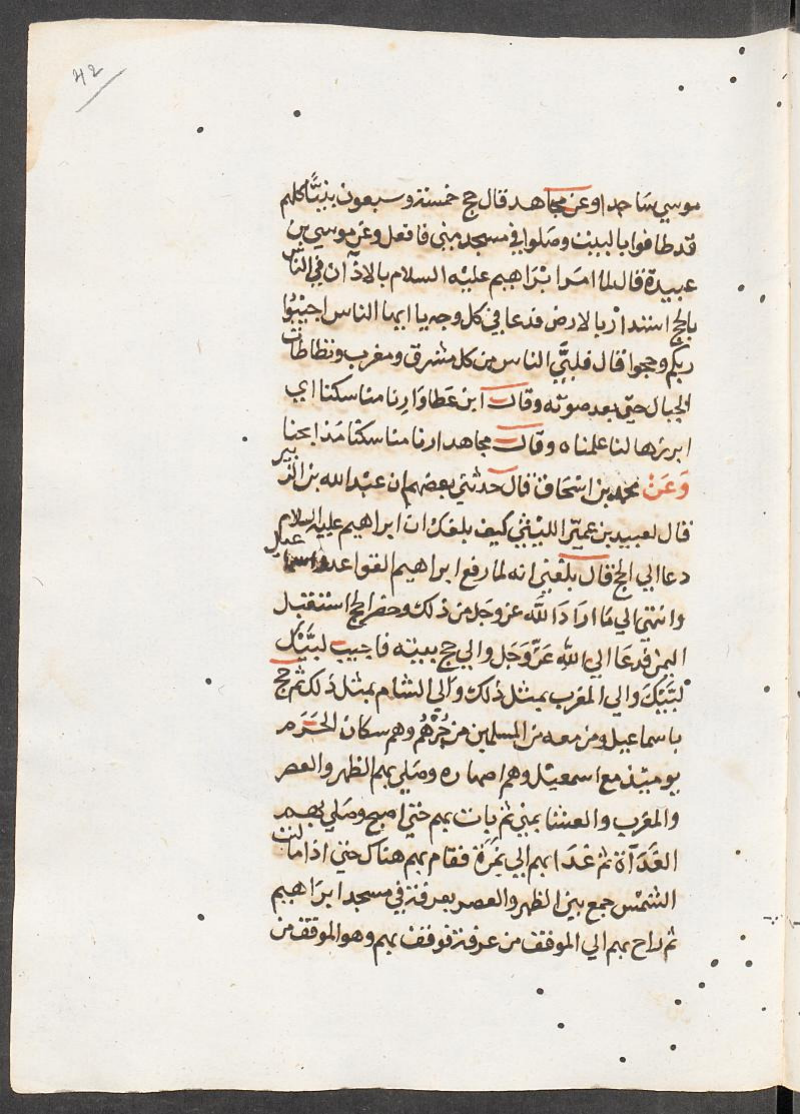 42
موسي ساجدا وعن مجاهد قال حج خمسة وسبعون نبيّا كلهم
قد طافوا بالبيت وصلوا في مسجد مني فافعل وعن موسي بن
عبيدة قال لما امر ابراهيم عليه السلام بالاذان في الناس
بالحج استدار بالارض فدعا في كل وجه يا ايها الناس اجيبوا
ربكم وحجوا قال فلبّي الناس من كل مشرق ومغرب وتطاطات
الجبال حتي بعد صوته وقال ابن عطا وارنا مناسكنا اي
ابرزها لنا علمناه وقال مجاهد ارنا مناسكنا مذابحنا
وعن محمد بن اسحاق قال حدثني بعضهم ان عبد الله بن الزبير
قال لعبيد بن عمير الليثي كيف بلغك ان ابراهيم عليه السلام
دعا الي الحج قال بلغني انه لما رفع ابراهيم القواعد واسماعيل
وانتهي الي ما اراد الله عز وجل من ذلك وحضر الحج استقبل
اليمن فدعا الي الله عزّ وجل والي حج بيته فاجيب لبّيك
لبّيك والي المغرب بمثل ذلك والي الشام بمثل ذلك ثم حج
باسماعيل ومن معه من المسلمين من جرهم وهم سكان الحرم
يوميذ مع اسمعيل وهم اصهاره وصلي بهم الظهر والعصر
والمغرب والعشا بمني ثم بات بهم حتي اصبح وصلي بهم
الغداة ثم غدا بهم الي نمرة فقام بهم هناك حتي اذا مالت
الشمس جمع بين الظهر والعصر بعرفة في مسجد ابراهيم
ثم راح بهم الي الموقف من عرفة فوقف بهم وهو الموقف من